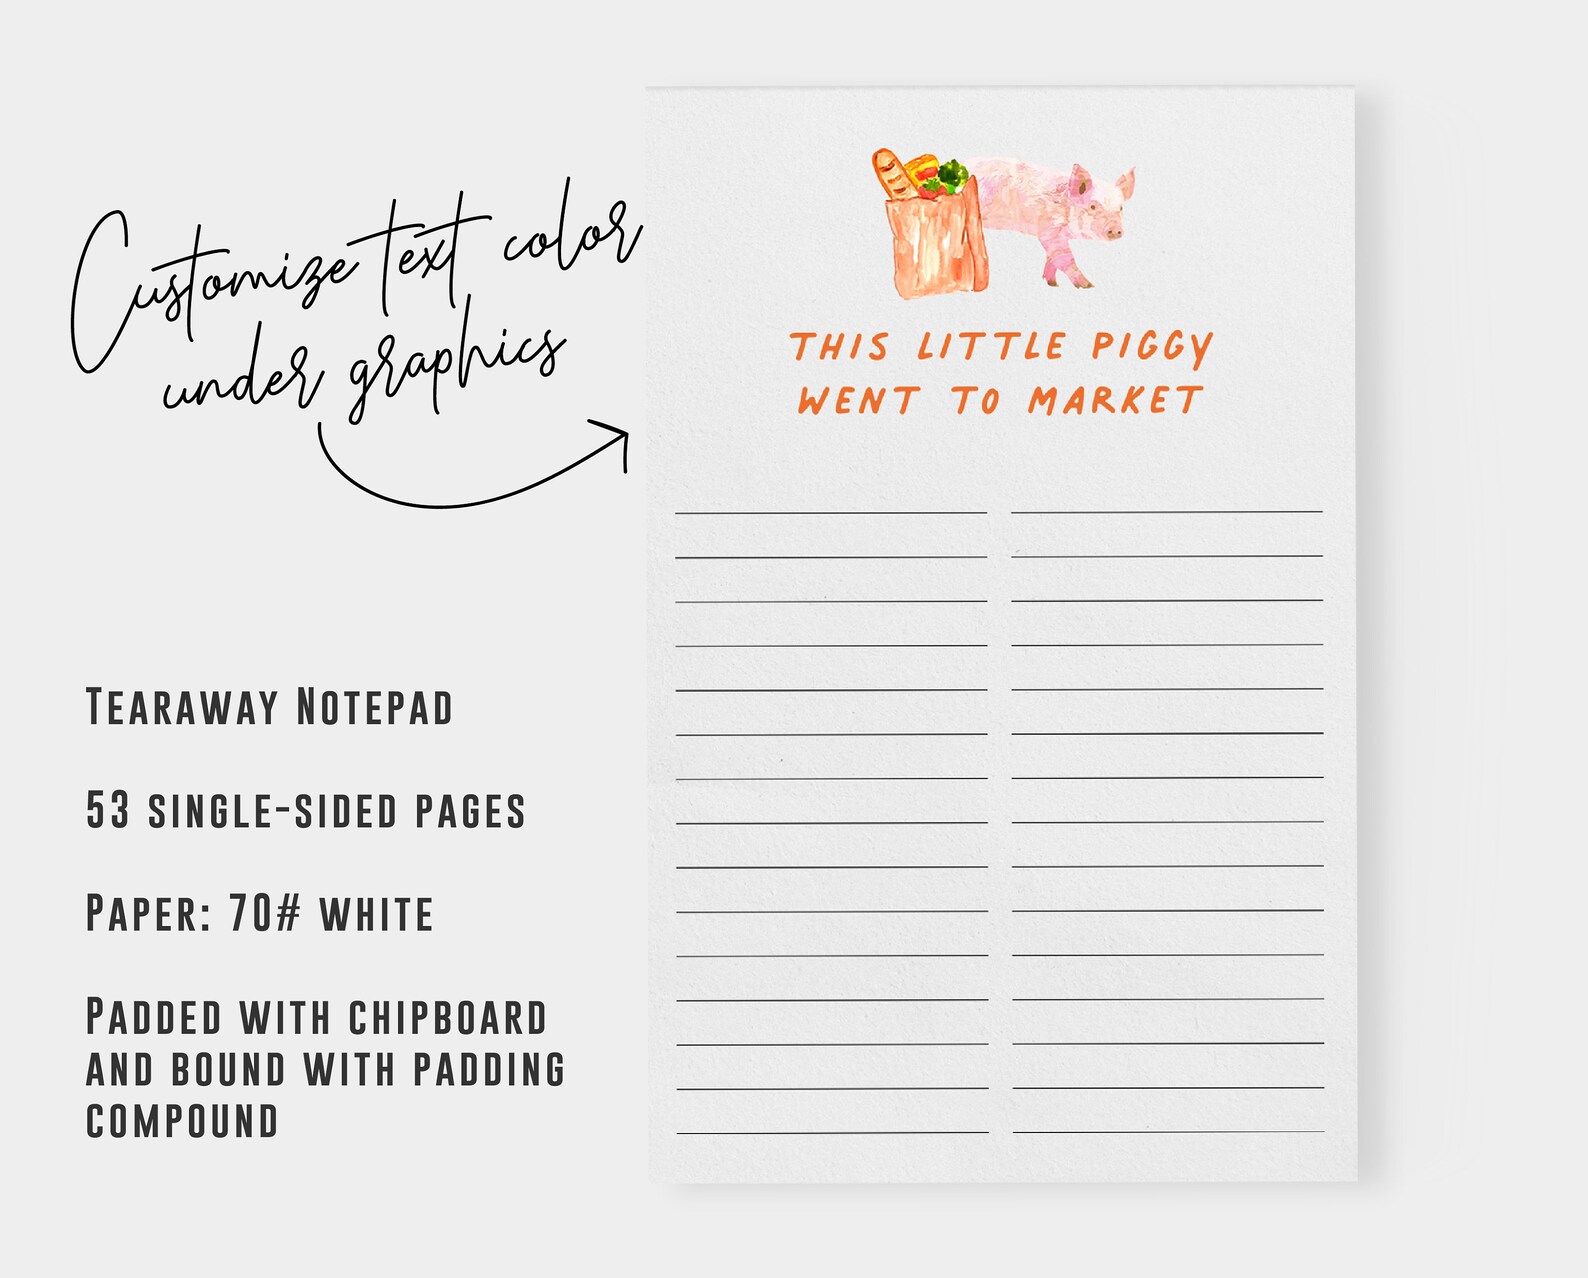 Customize text color
under graphics
THIS LITTLE PIGGY
WENT TO MARKET
TEARAWAY NOTEPAD
53 SINGLE-SIDED PAGES
PAPER: 70# WHITE
PADDED WITH CHIPBOARD
AND BOUND WITH PADDING
COMPOUND